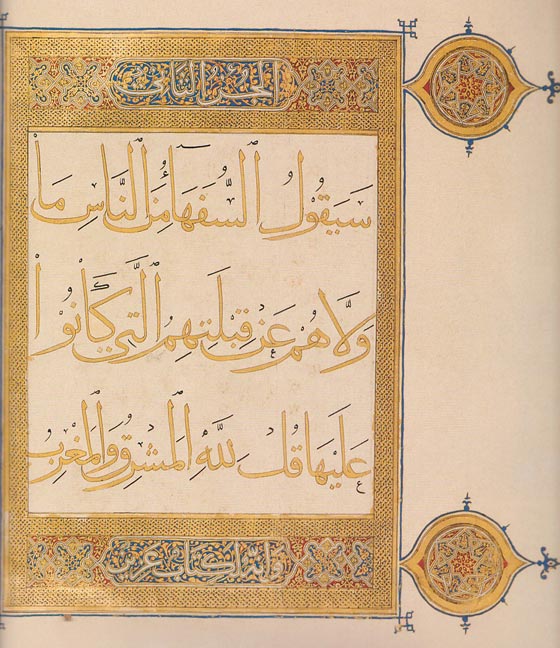 الجزء الثاني
سَيَقُولُ ٱلسُّفَهَاءُ مِنَ ٱلنَّاسِ مَا
وَلَّاهُمْ عَنْ قِبْلَتِهِمُ ٱلَّتِي كَانُوا
عَلَيْهَا قُلْ لِلَّهِ ٱلْمَشْرِقُ وَٱلْمَغْرِبُ
وانه لكتاب عزيز